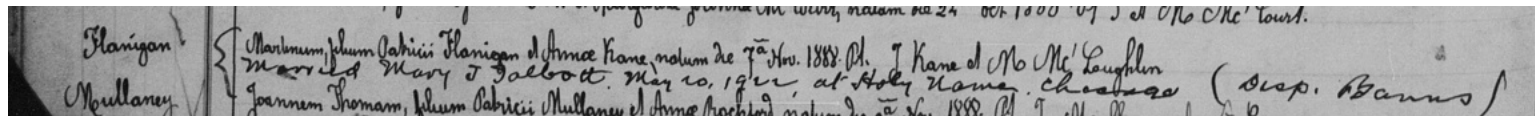 natam die 24 Oct 1888 Pt J et M Mc'Court.
Flanigan Martinum, filium Patricii Flanigan et Annæ Kane, natum die 7ª Nov. 1888. Pt. J Kane et M Mc'Loughlin
Married Mary J Talbott. May 20, 1922, at Holy Name. Chicago (Disp. Banns)
Mullaney Joannem Thomam, filium Patricii Mullaney et Annæ Rochford natum die Nov. 1888 Pt. J